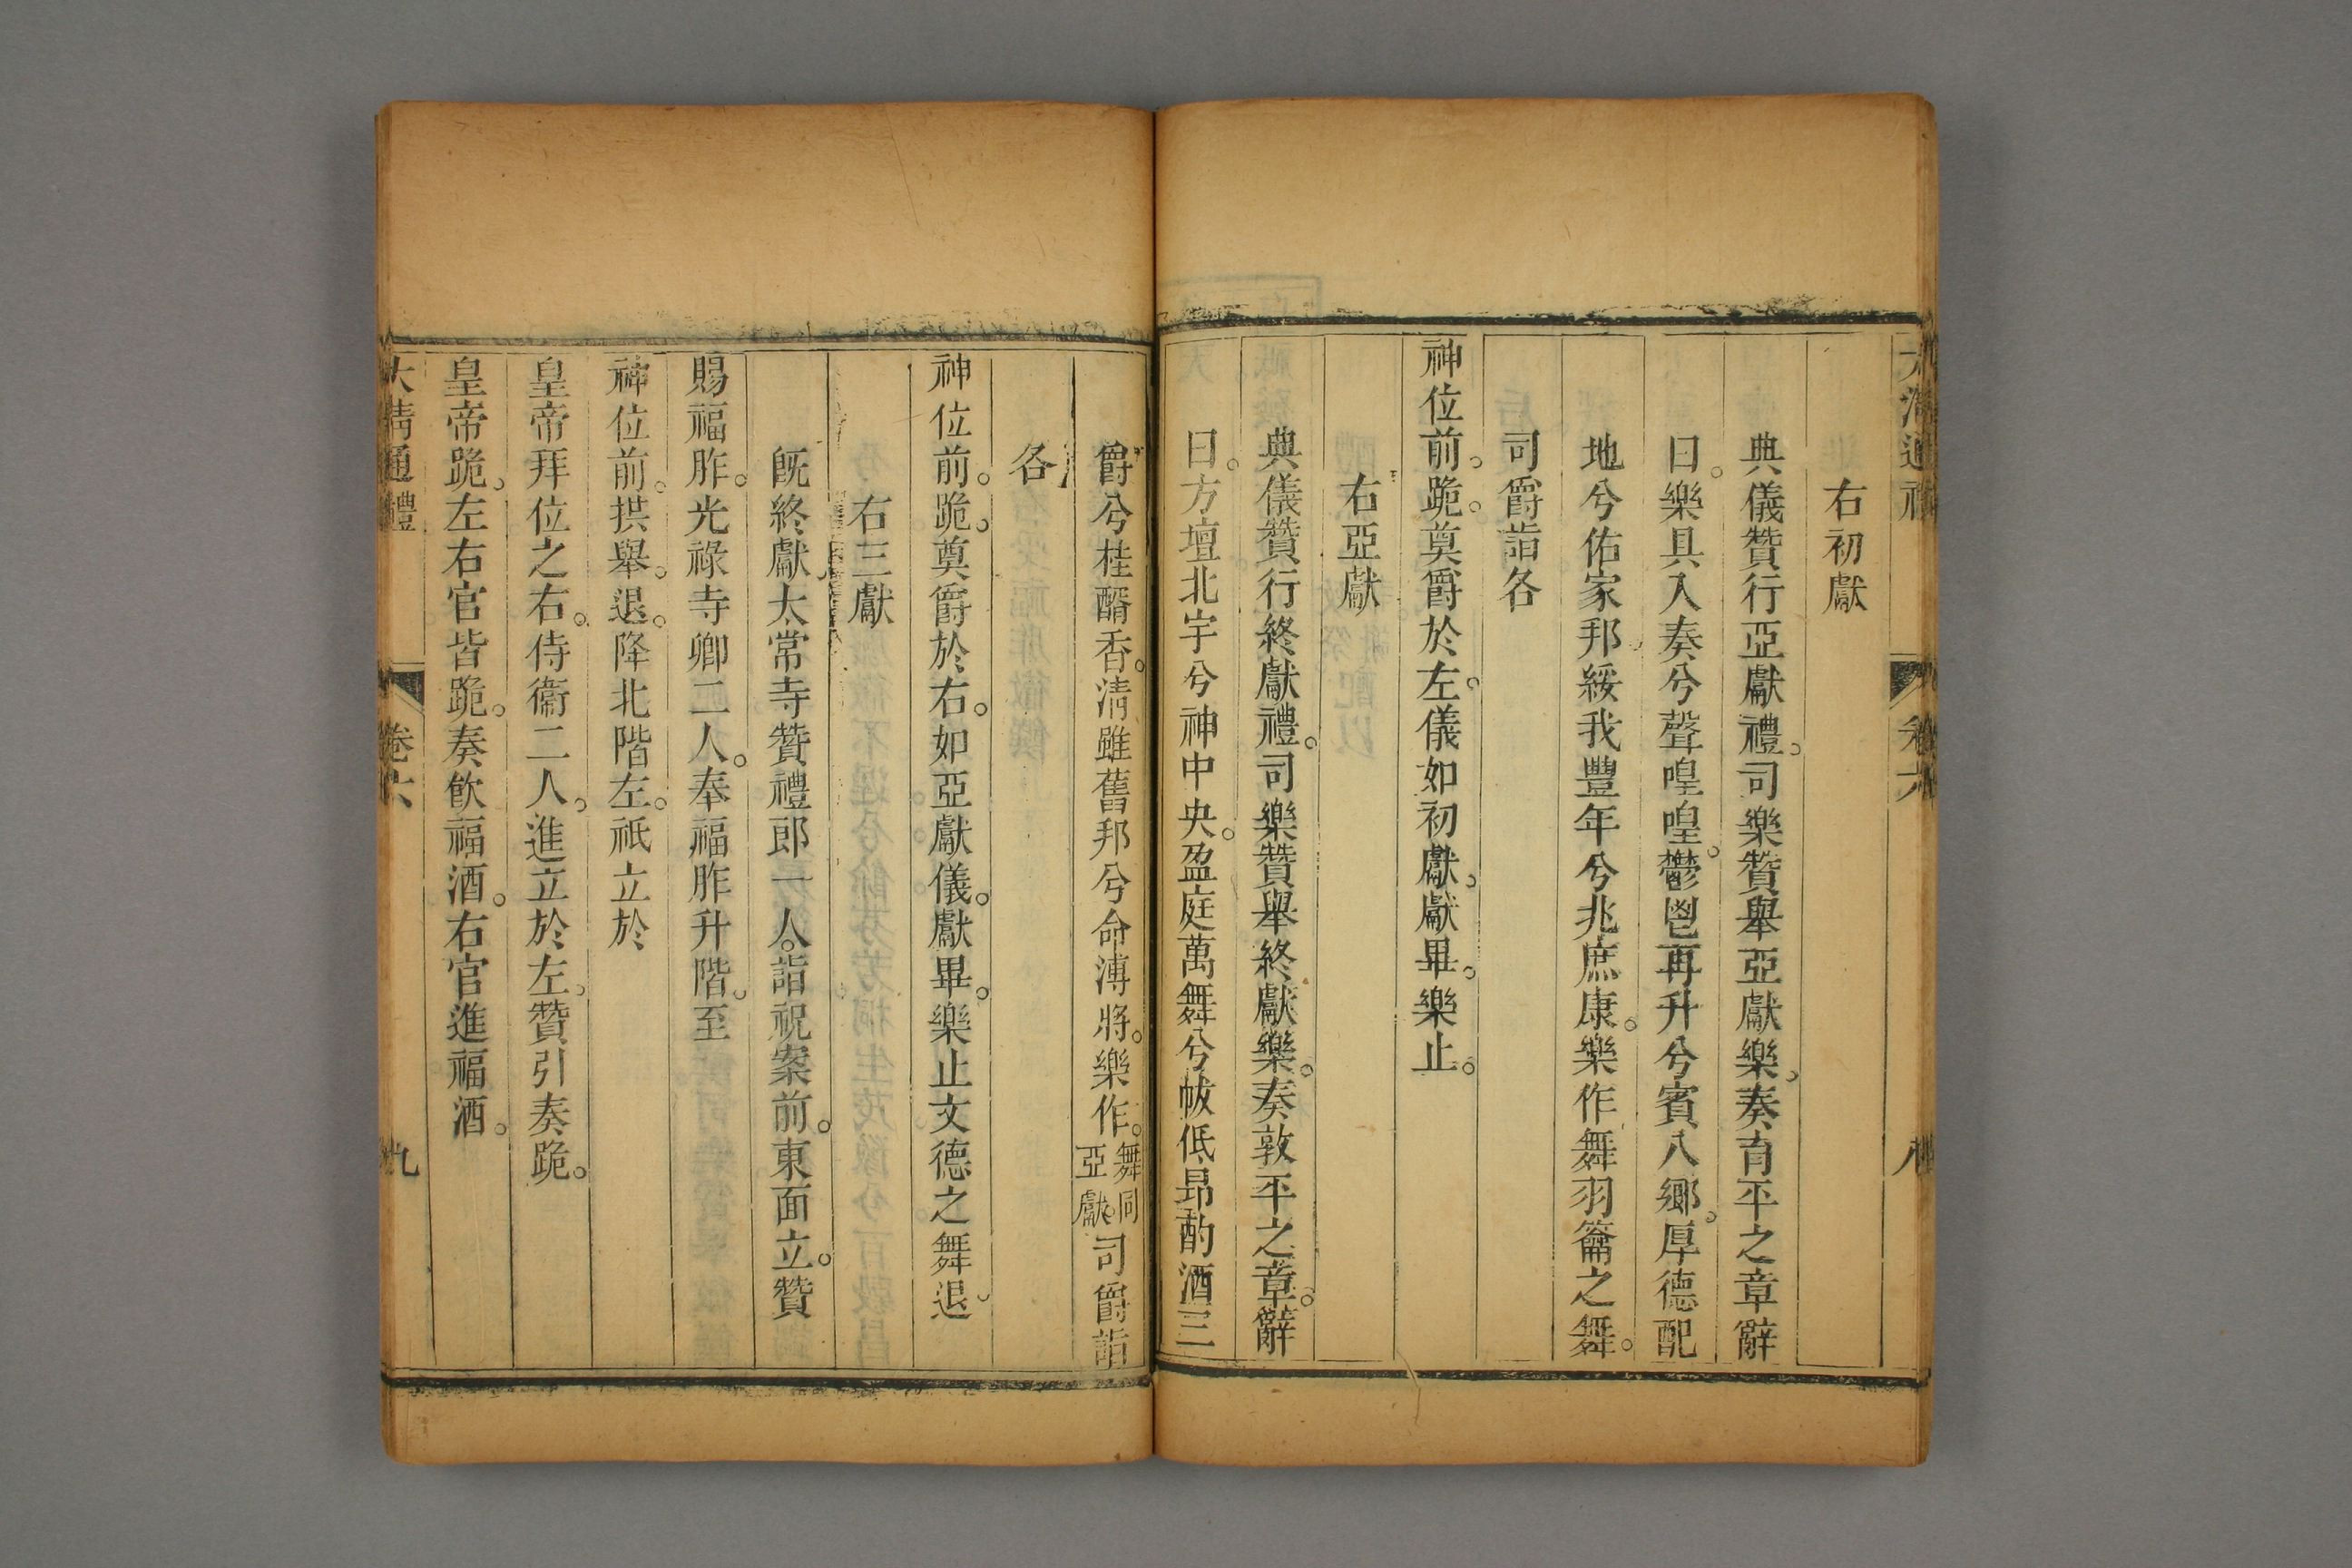 大清通禮 卷六 八
右初獻
典儀贊行亞獻禮。司樂贊舉亞獻樂。奏育平之章辭
曰。樂具入奏兮聲喤喤。鬱鬯再升兮賓八鄉。厚德配
地兮佑家邦綏我豐年兮兆庶康。樂作舞羽籥之舞。
司爵詣各
神位前。跪。奠爵於左。儀如初獻。獻畢。樂止。
右亞獻
典儀贊行終獻禮。司樂贊舉終獻樂。奏敦平之章。辭
曰。方壇北宇兮神中央。盈庭萬舞兮帗低昂酌酒三
爵兮桂醑香。清雖舊邦兮命溥將。樂作。舞同亞獻。司爵詣
各
神位前。跪。奠爵於右。如亞獻儀。獻畢。樂止文德之舞退
右三獻
旣終獻。太常寺贊禮郎一人。詣祝案前。東面立。贊
賜福胙。光祿寺卿二人。奉福胙升階。至
神位前。拱舉。退。降北階左。祇立於
皇帝拜位之右。侍衞二人。進立於左。贊引奏跪。
皇帝跪。左右官皆跪。奏飲福酒。右官進福酒。
大清通禮 卷六 九